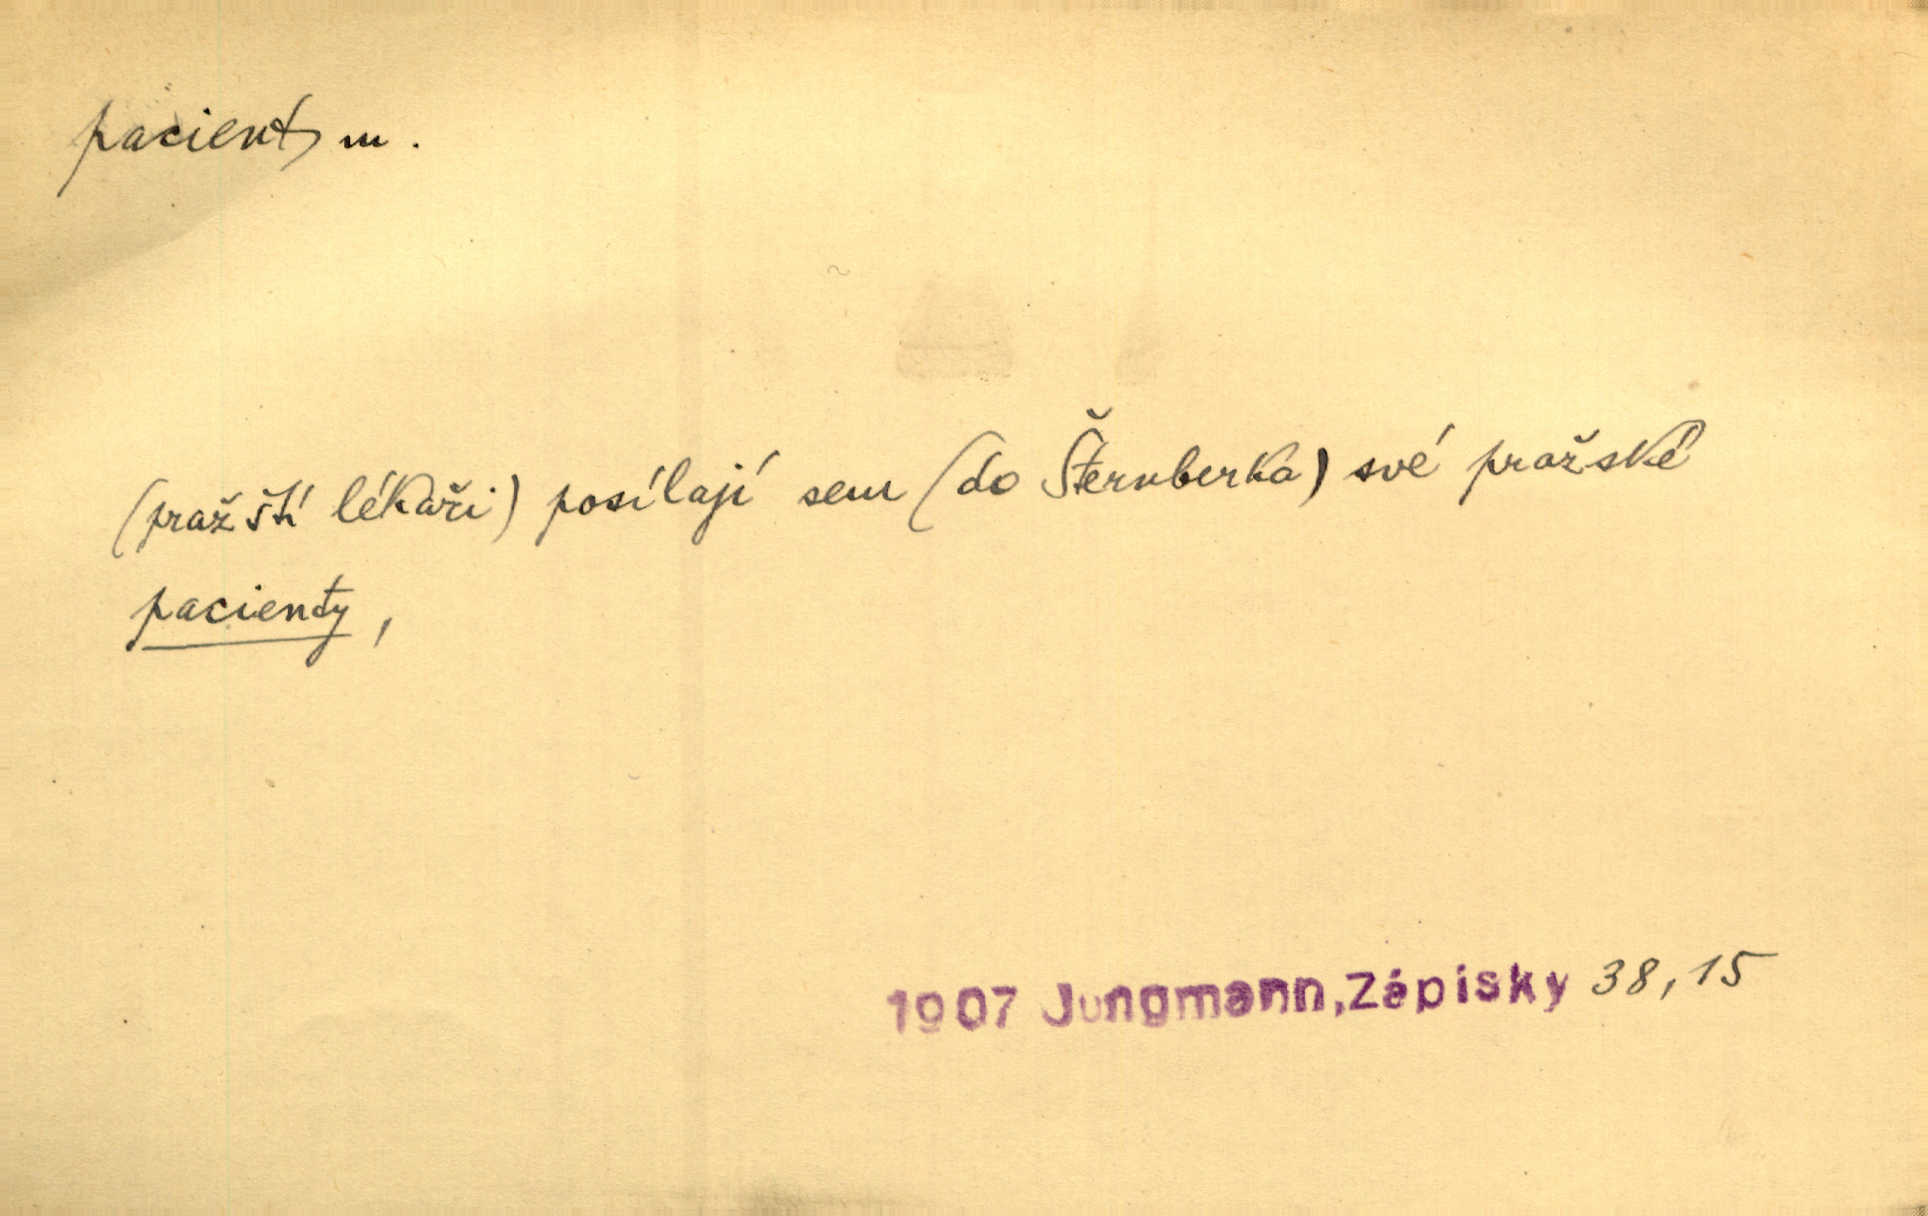 pacient m.
(pražští lékaři) posílají sem (do Šternberka) své pražské
pacienty,
1907 Jungmann, Zápisky 38, 15